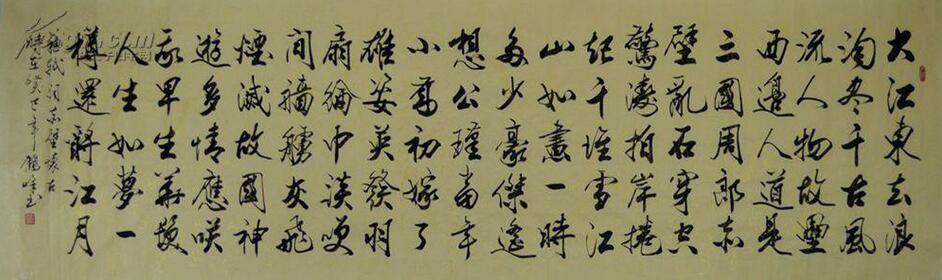 大江東去浪
淘尽千古風
流人物故壘
西邊人道是
三國周郎赤
壁亂石穿空
驚濤拍岸捲
起千堆雪江
山如畫一時
多少豪傑遙
想公瑾當年
小喬初嫁了
雄姿英發羽
扇綸巾談笑
間檣艣灰飛
煙滅故國神
遊多情應笑
我早生華髮
人生如夢一
樽還酹江月
蘇軾詞赤壁懷古
時在癸巳年